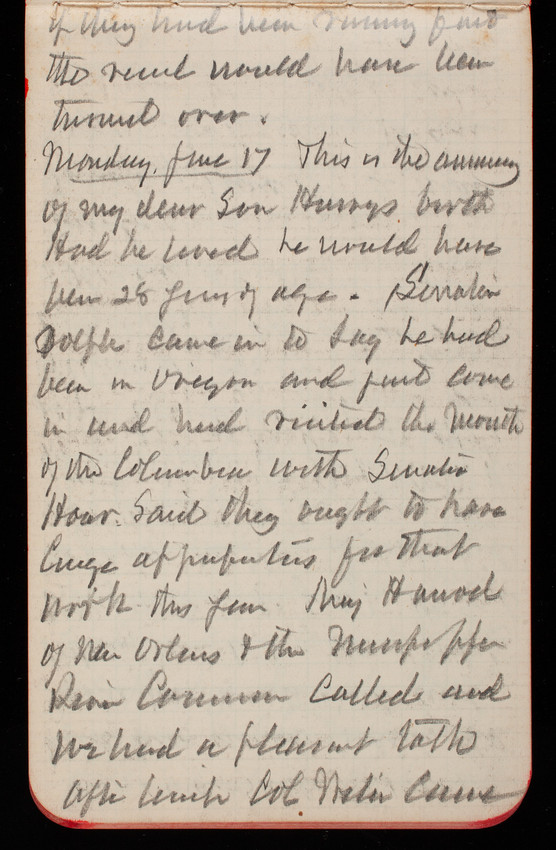 if they had been running fast
the vessel would have been
turned over.
Monday, June 17 This is the anniversary
of my dear Son Harrys birth
Had he lived he would have
been 28 years of age. Senator
Dolph came in to say he had
been in Oregon and just come
in and had visited the Mouth
of the Columbia with Senator
Hoar. Said they ought to have
large appropriations for that
work this year Maj Harrod
of New Orleans & the Mississippi
River Commission Called and
we had a pleasant talk
After lunch Col came